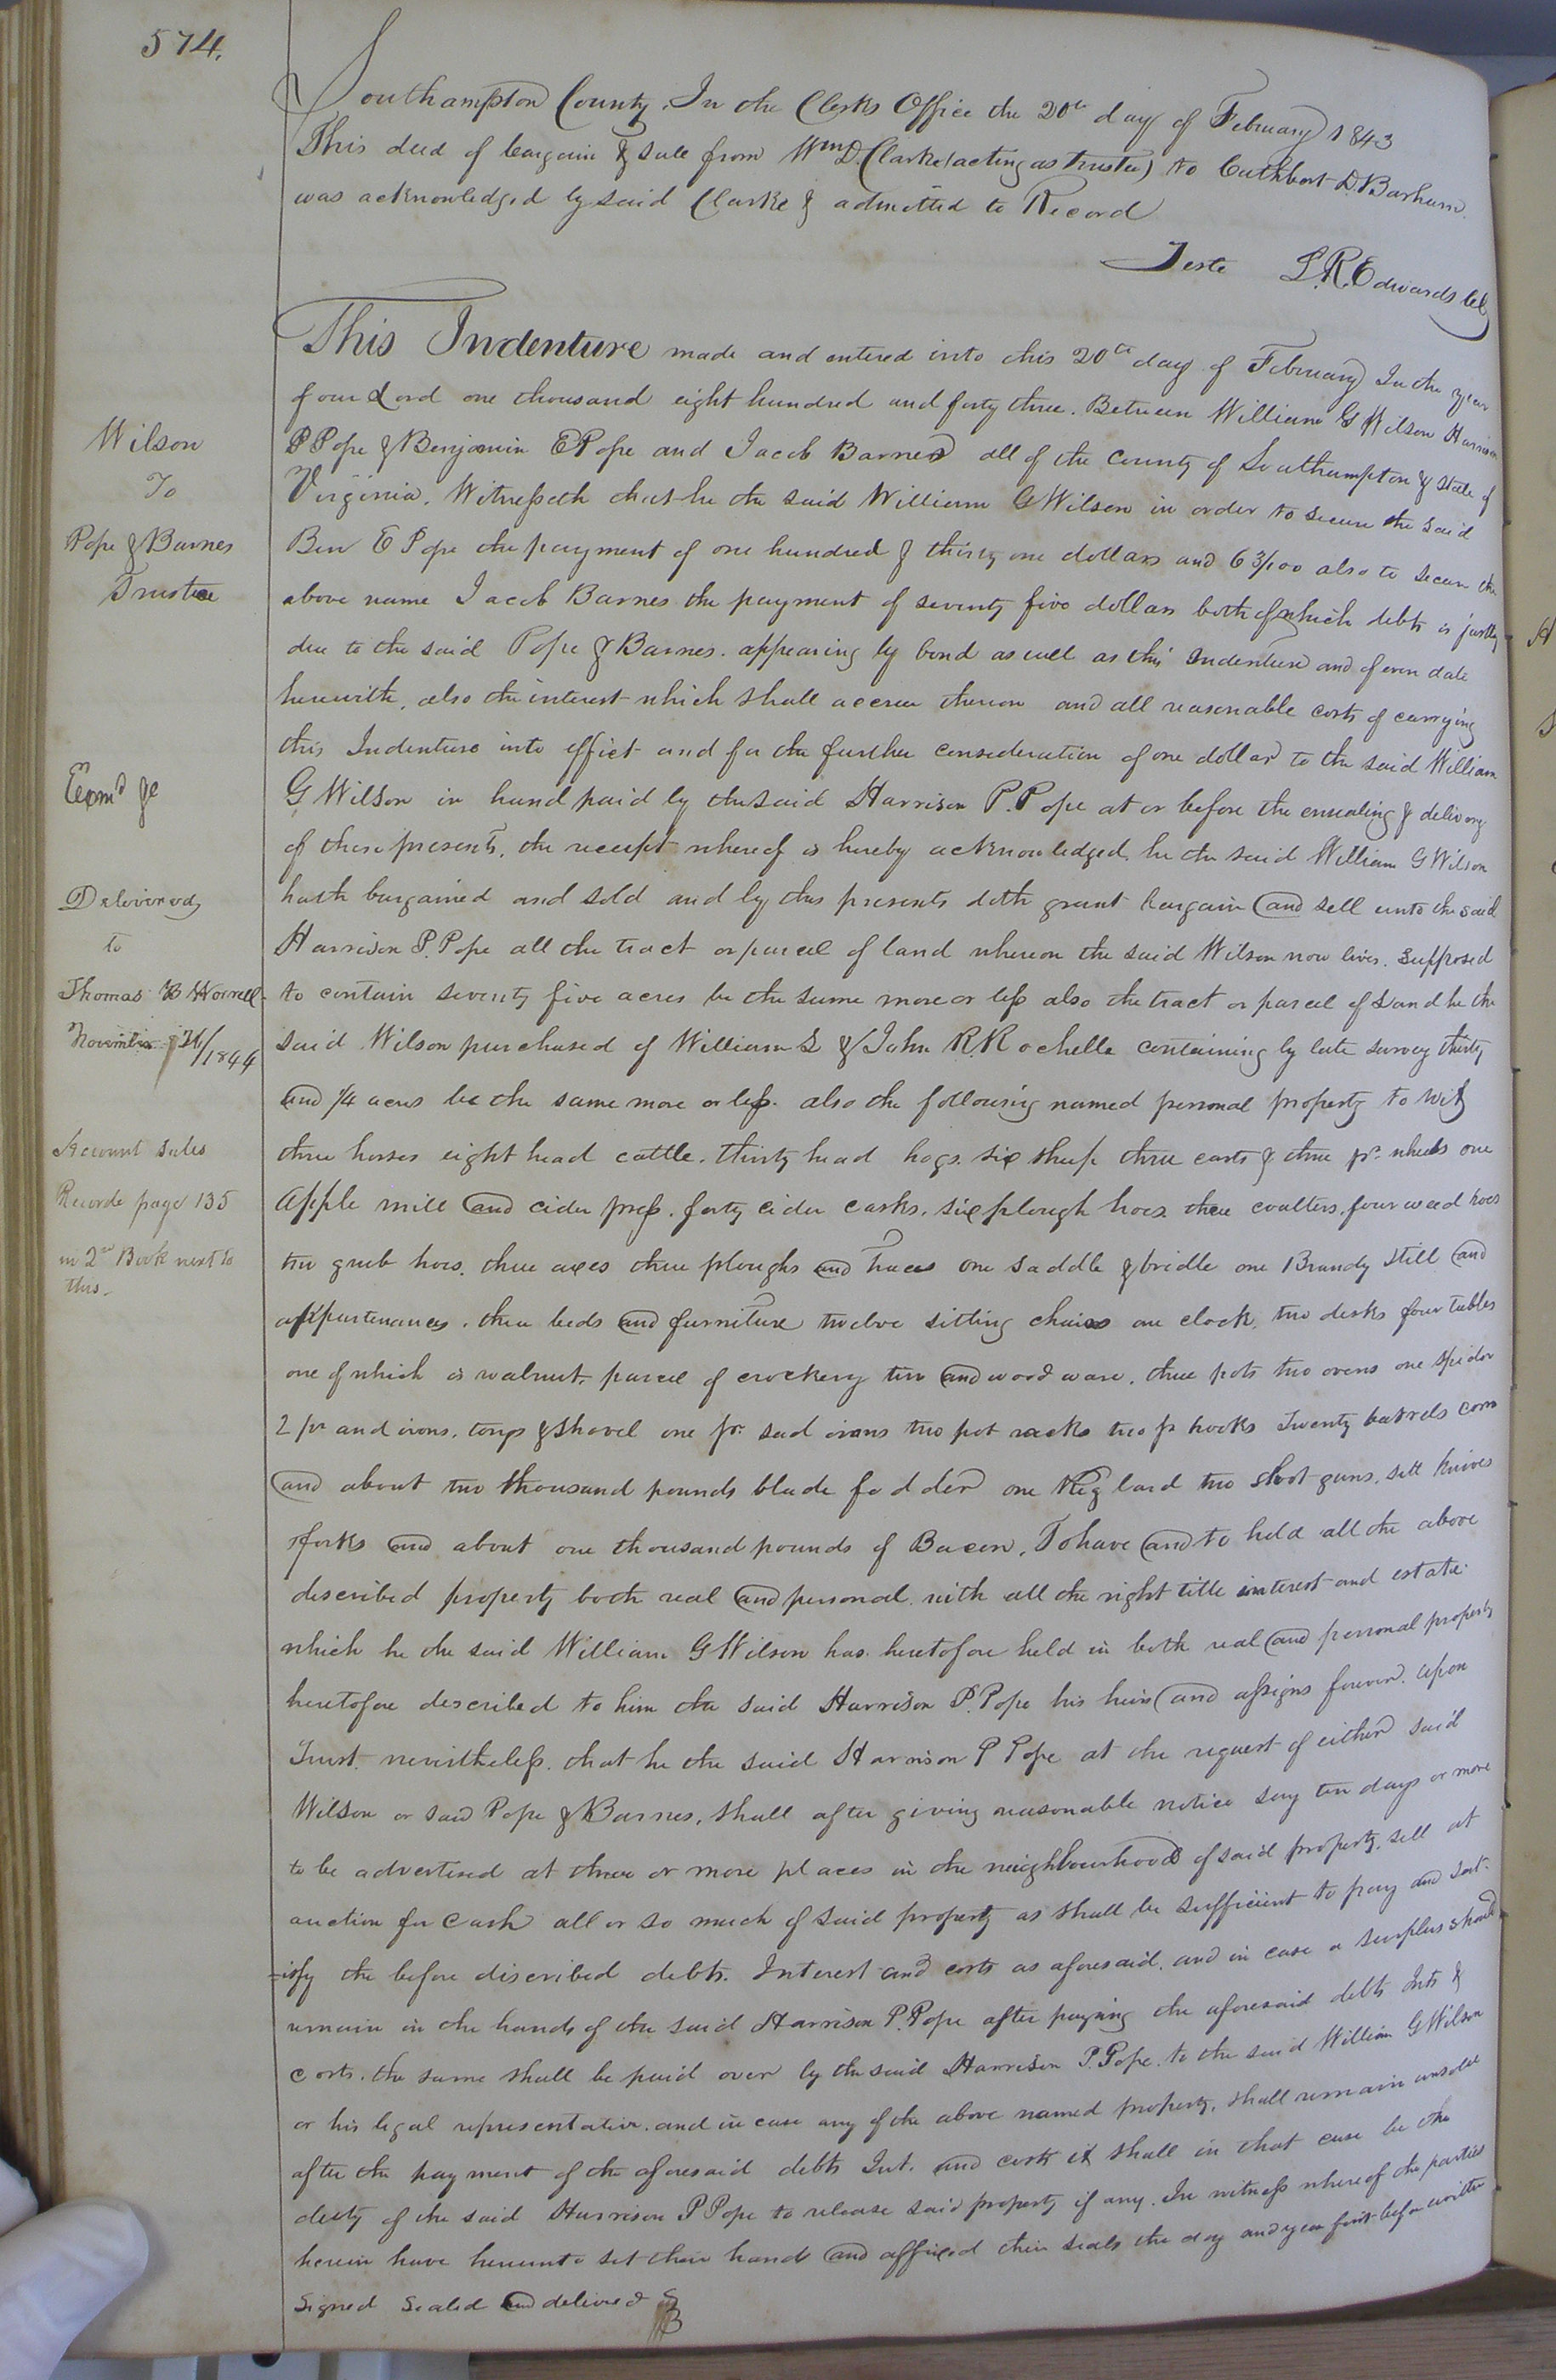 574.
Southampton County. In the Clerks Office the 20th day of February 1843
This deed of bargain & sale from Wm D. Clarke (acting as Trustee) to Cuthbert D. Barham
was acknowledged by said Clarke & admitted to Record
Teste L. R. Edwards Clk
This Indenture made and entered into this 20th day of February In the year
of our Lord one thousand eight hundred and forty three. Between William G Wilson Harrison
P Pope & Benjamin E Pope and Jacob Barnes all of the County of Southampton & State of
Virginia. Witnesseth that he the said William G Wilson in order to secure the said
Ben E Pope the payment of one hundred & thirty one dollars and 63/100 also to secure the
above name Jacob Barnes the payment of seventy five dollars both of which debts is justly
due to the said Pope & Barnes. appearing by bond as well as this Indenture and of even date
herewith, also the interest which shall accrue thereon and all reasonable costs of carrying
this Indenture into effect and for the further consideration of one dollar to the said William
G Wilson in hand paid by the said Harrison P. Pope at or before the ensealing & delivery
of these presents, the receipt whereof is hereby acknowledged, he the said William G Wilson
hath bargained and sold and by thes presents doth grant bargain and sell unto the said
Harrison P. Pope all the tract or parcel of land whereon the said Wilson now lives. supposed
to contain seventy five acres be the same more or less also the tract or parcel of Land he the
said Wilson purchased of William S & John R. Rochelle containing by late survey thirty
and 1/4 acres be the same more or less. also the following named personal property to wit
three horses eight head cattle. thirty head hogs. six sheep three carts & three pr. wheels one
apple mill and cider press. forty cider casks. six plough hoes three coulters, four weed hoes
two grub hoes. three axes three ploughs and traces one saddle & bridle one Brandy still and
appurtenances. three beds and furniture twelve sitting chairs one clock, two desks four tables
one of which is walnut. parcel of crockery tin and wood ware. three pots two ovens one spider
2 pr and irons. tongs & shovel one pr. sad irons two pot racks two pr hooks Twenty barrels corn
and about two thousand pounds blade fodder one keg lard two shot guns. sett knives
forks and about one thousand pounds of Bacon. To have and to hold all the above
described property both real and personal with all the right title interest and estate
which he the said William G Wilson has heretofore held in both real and personal property
heretofore described to him the said Harrison P. Pope his heirs and assigns forever. upon
Trust nevertheless. that he the said Harrison P Pope at the request of either said
Wilson or said Pope & Barnes, shall after giving reasonable notice say ten days or more
to be advertised at three or more places in the neighbourhood of said property, sell at
auction for cash all or so much of said property as shall be sufficient to pay and sat-
-isfy the before discribed debts. Interest and costs as aforesaid. and in case a surplus should
remain in the hands of the said Harrison P. Pope after paying the aforesaid debts Ints &
costs. the same shall be paid over by the said Harrison P. Pope. to the said William G Wilson
or his legal representative. and in case any of the above named property, shall remain unsold
after the payment of the aforesaid debts Int. and costs it shall in that case be the
duty of the said Harrison P Pope to release said property if any. In witness whereof the parties
herein have hereunto set their hands and affixed their seals the day and year first before written
Signed Sealed and delivered
Wilson
To
Pope & Barnes
Trustee
Exam'd
Delivered
to
Thomas B Worrell
November
1844
Account Sales
Recorde page 135
in 2nd Book next to
this.